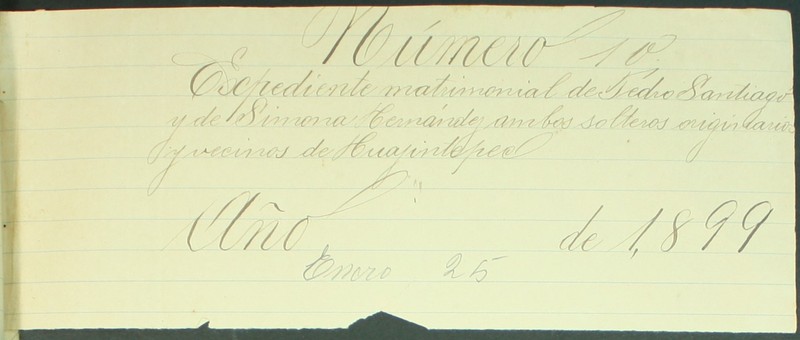 Número 10.
Expediente matrimonial de Pedro Santiago
y de Simona Hernández ambos solteros originarios
y vecinos de Huajintepec
Año de 1,899
Enero 25